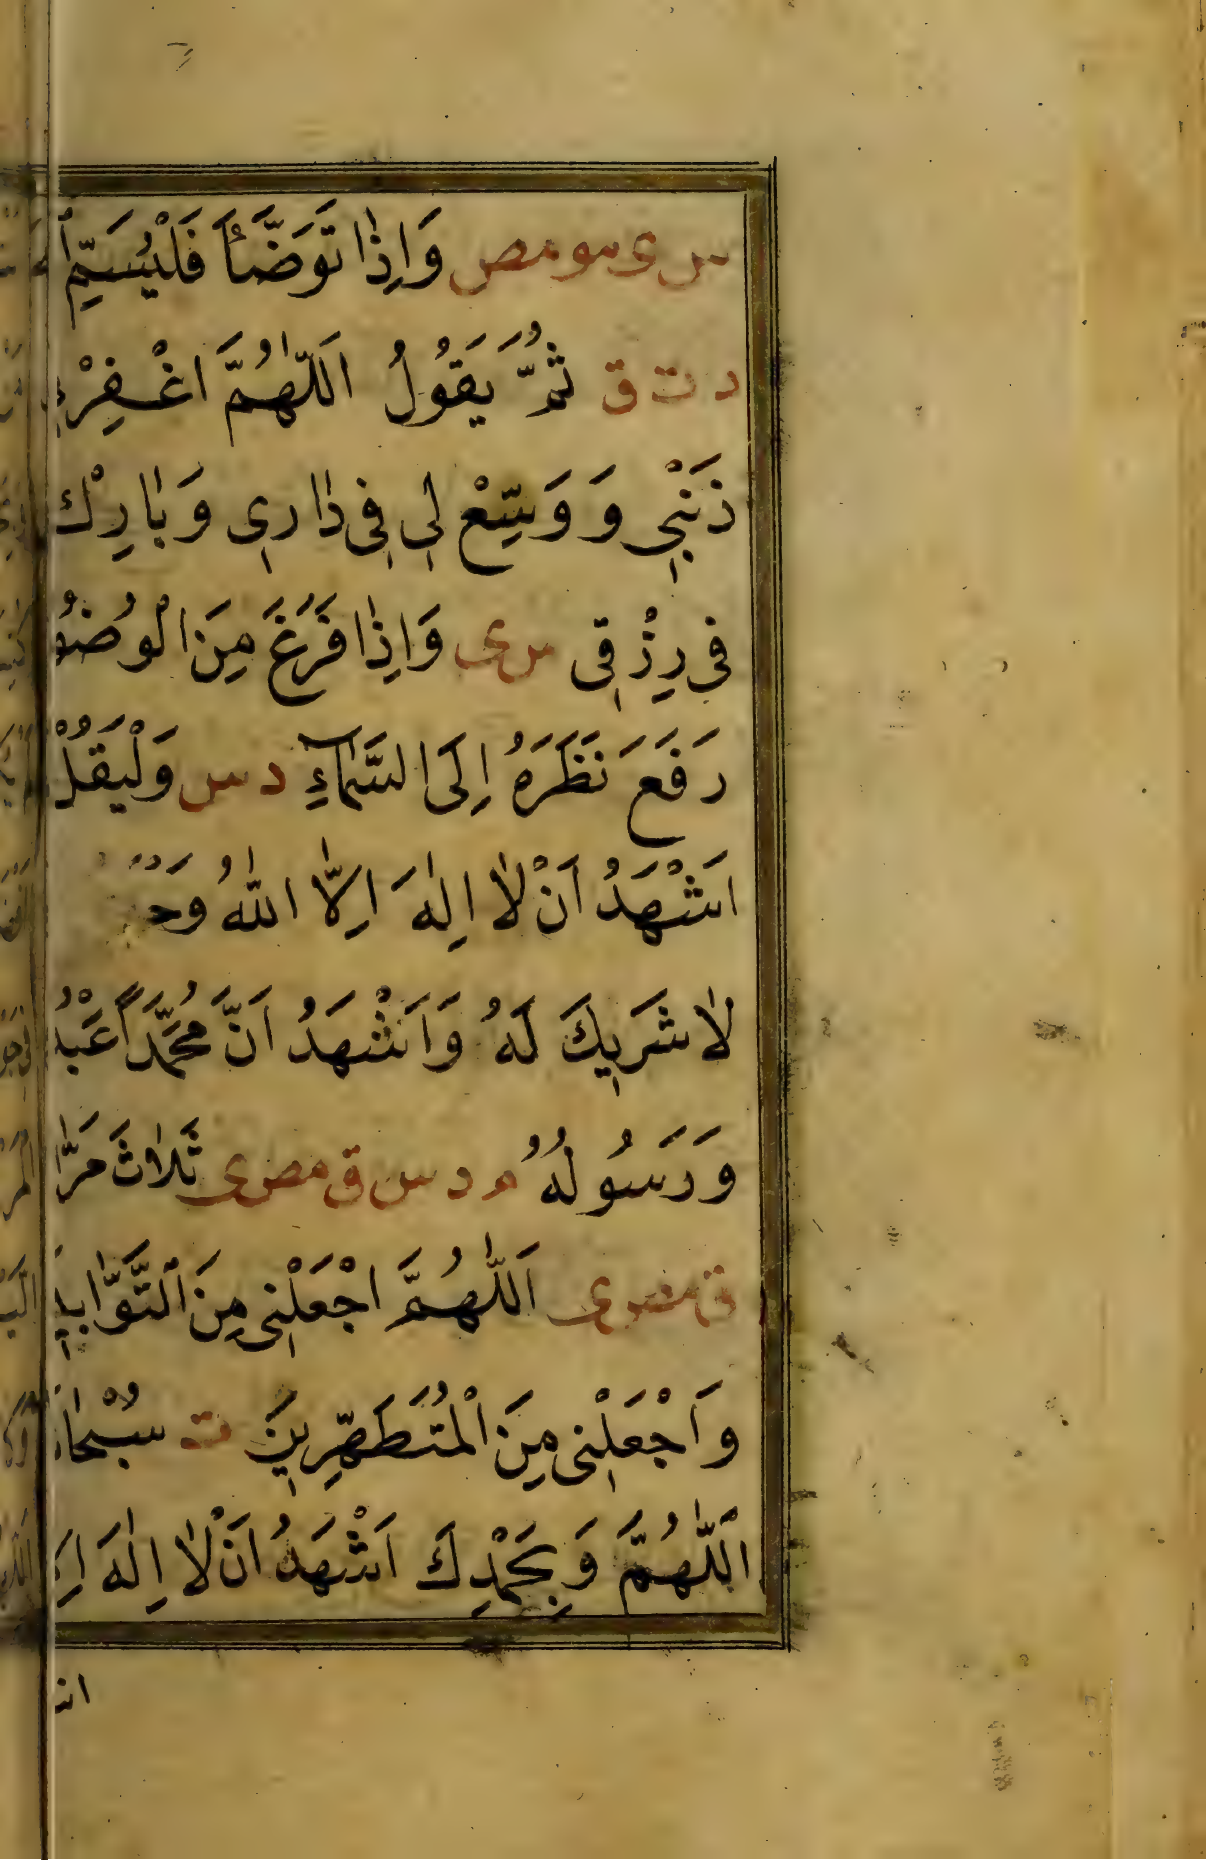 س ى سو مص وَاِذَا تَوَضَّأَ فَلْيُسَمِّ
د ت ق ثُمَّ يَقُولُ اَللّٰهُمَّ اغْفِرْ
ذَنْبِي وَ وَسِّعْ لِي فِي دٰارِي وَبٰارِكْ
فِي رِزْقِي س ى وَاِذَا فَرَغَ مِنَ الْوُضُو
رَفَعَ نَظَرَهُ اِلَى السَّمٰآءِ د س وَلْيَقُلْ
اَشْهَدُ اَنْ لٰا اِلٰهَ اِلَّا اللّٰهُ وَحْ
لٰا شَرِيكَ لَهُ وَاَشْهَدُ اَنَّ مُحَمَّدًا عَبْدُ
وَرَسُولُهُ م د س ق مص ى ثَلٰاثَ مَرّٰا
ق مص ى اَللّٰهُمَّ اجْعَلْنِي مِنَ التَّوّٰابِي
وَاجْعَلْنِي مِنَ الْمُتَطَهِّرِينَ ت سُبْحٰانَ
اَللّٰهُمَّ وَبِحَمْدِكَ اَشْهَدُ اَنْ لٰا اِلٰهَ اِ
انت